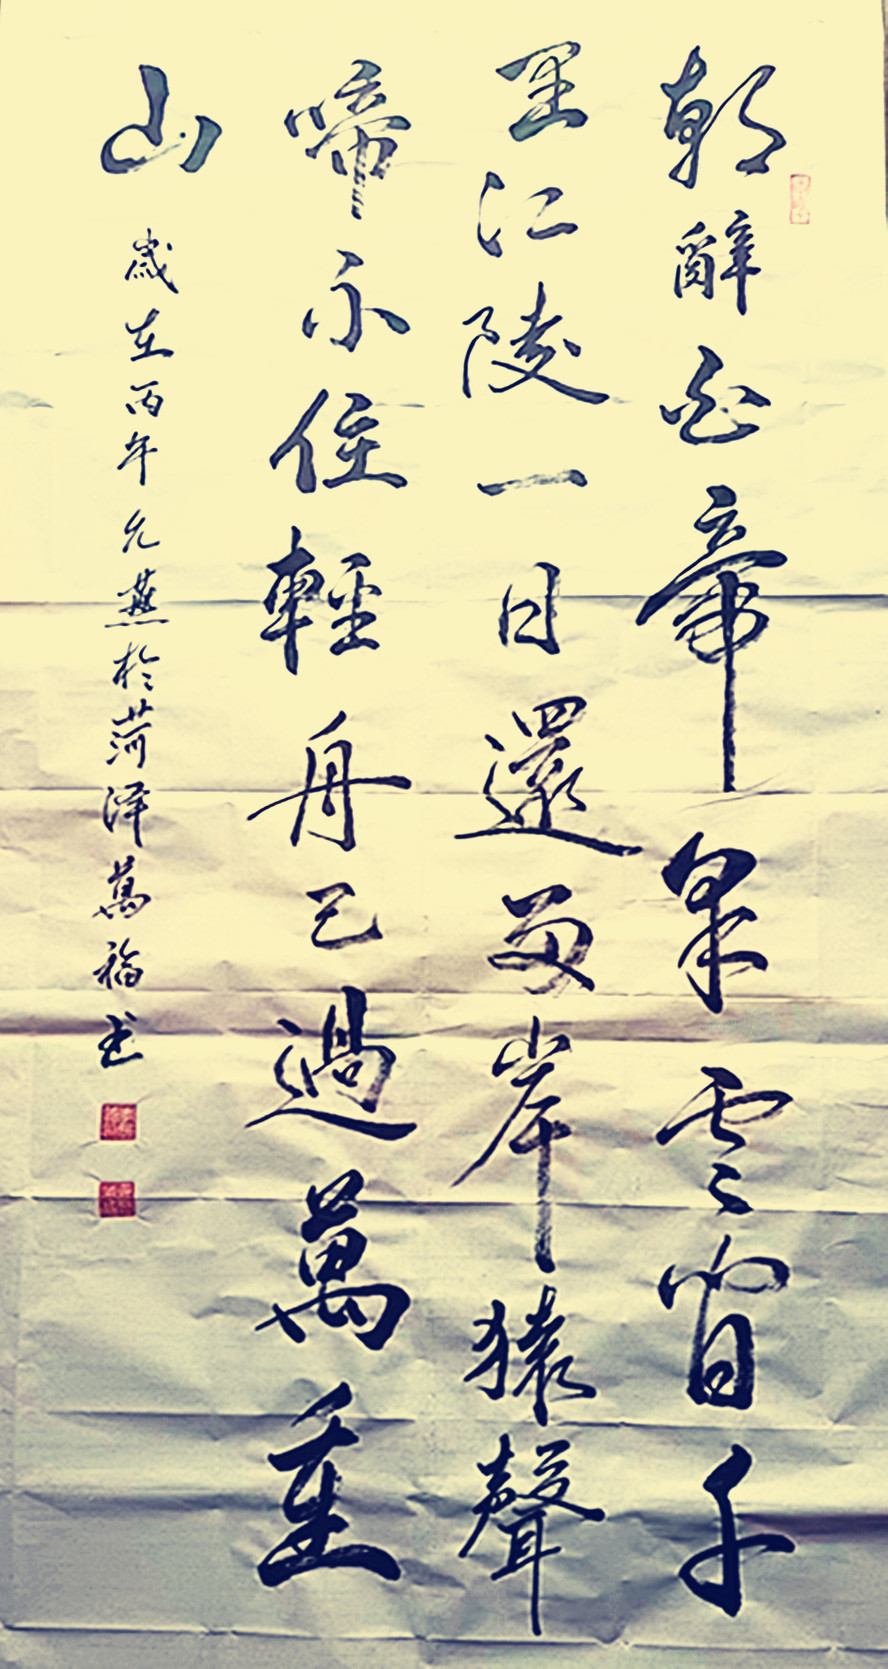 朝辭白帝采雲間千
里江陵一日還兩岸猿聲
啼不住輕舟已過萬重
山
歲在丙午允燕於菏泽萬福书